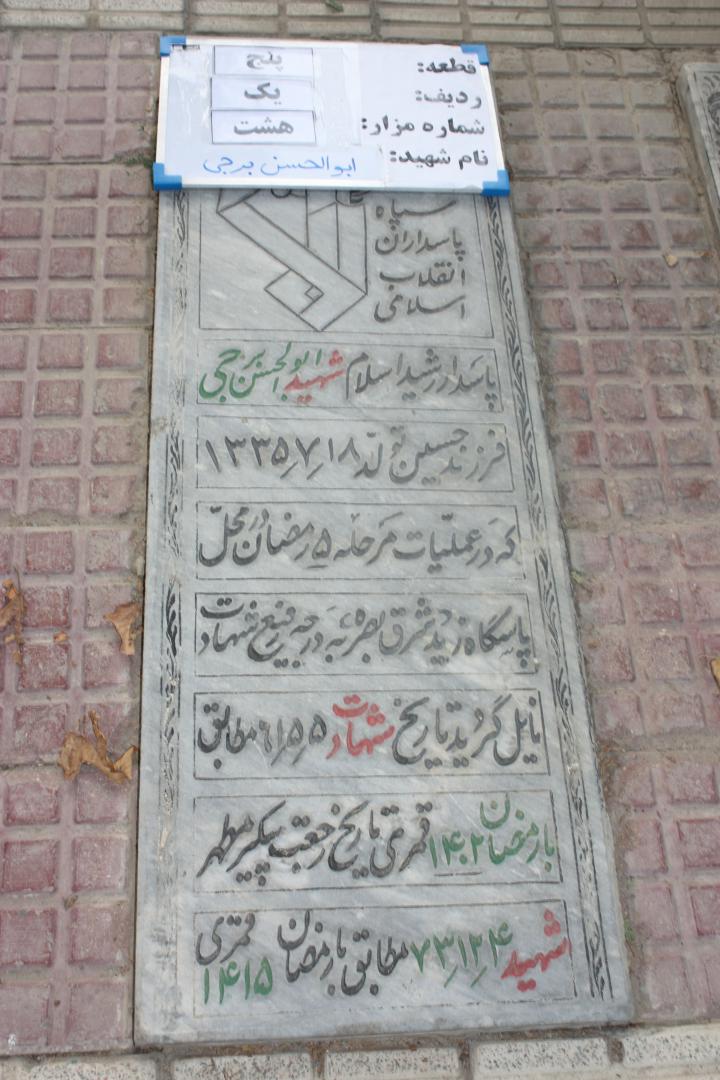 قطعه: پنج
ردیف: یک
شماره مزار: هشت
نام شهید: ابوالحسن برجی
سپاه
پاسداران
انقلاب
اسلامی
پاسدار رشید اسلام شهید ابوالحسن برجی
فرزند حسین تولّد ۱۸٫۷٫۱۳۳۵
که در عملیّات مرحله ۵ رمضان در محلّ
پاسگاه زید شرق بصره به درجه رفیع شهادت
نایل گردید تاریخ شهادت ۵٫۵٫۶۱ مطابق
با رمضان ۱۴۰۲ قمری تاریخ رجعت پیکر مطهر
شهید ۷۳٫۱۲٫۴ مطابق با رمضان قمری ۱۴۱۵